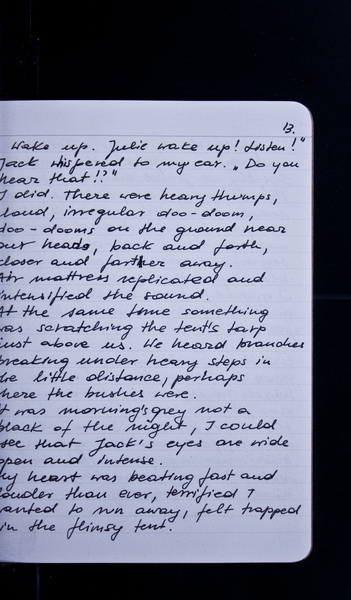 13.
Wake up. Julie wake up! Listen!"
Jack whispered to my ear. „Do you
hear that!?"
I did. There were heavy thumps,
loud, irregular doo-doom,
doo-dooms on the ground near
our heads, back and forth,
closer and farther away.
Air mattress replicated and
intensified the sound.
At the same time something
was scratching the tent's tarp
just above us. We heard branches
breaking under heavy steps in
the little distance, perhaps
where the bushes were.
It was morning's grey not a
black of the night, I could
see that Jack's eyes are wide
open and intense.
My heart was beating fast and
louder than ever, terrified I
wanted to run away, felt trapped
in the flimsy tent.